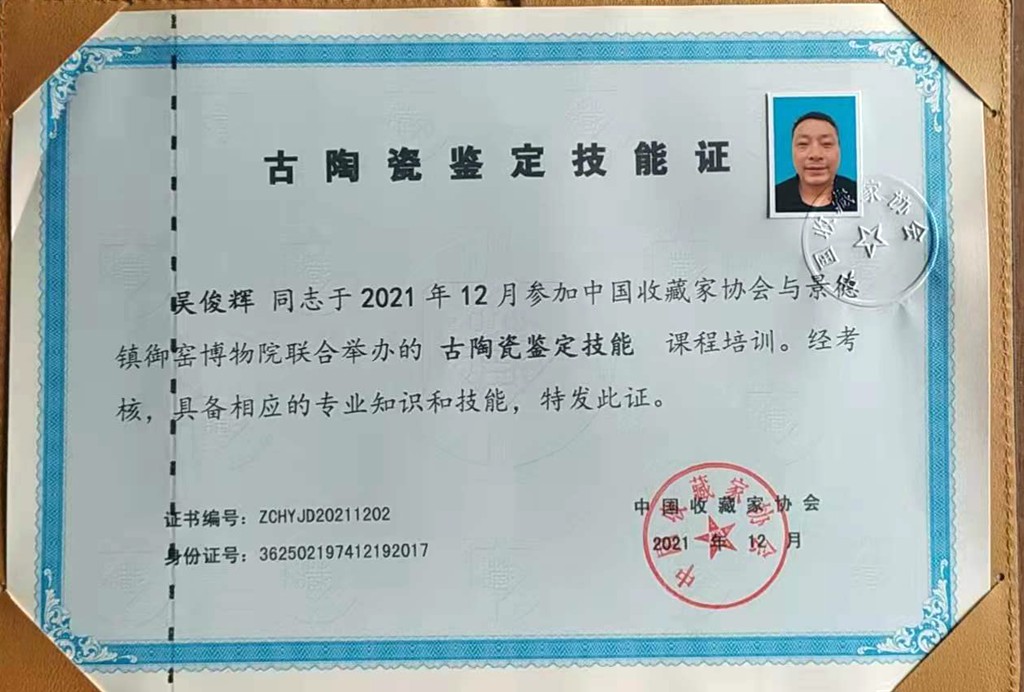 古陶瓷鉴定技能证
吴俊辉 同志于2021年12月参加中国收藏家协会与景德
镇御窑博物院联合举办的 古陶瓷鉴定技能 课程培训。经考
核，具备相应的专业知识和技能，特发此证。
证书编号：ZCHYJD20211202
身份证号：362502197412192017
中国收藏家协会
2021 年 12 月
中国收藏家协会
国收藏家协会